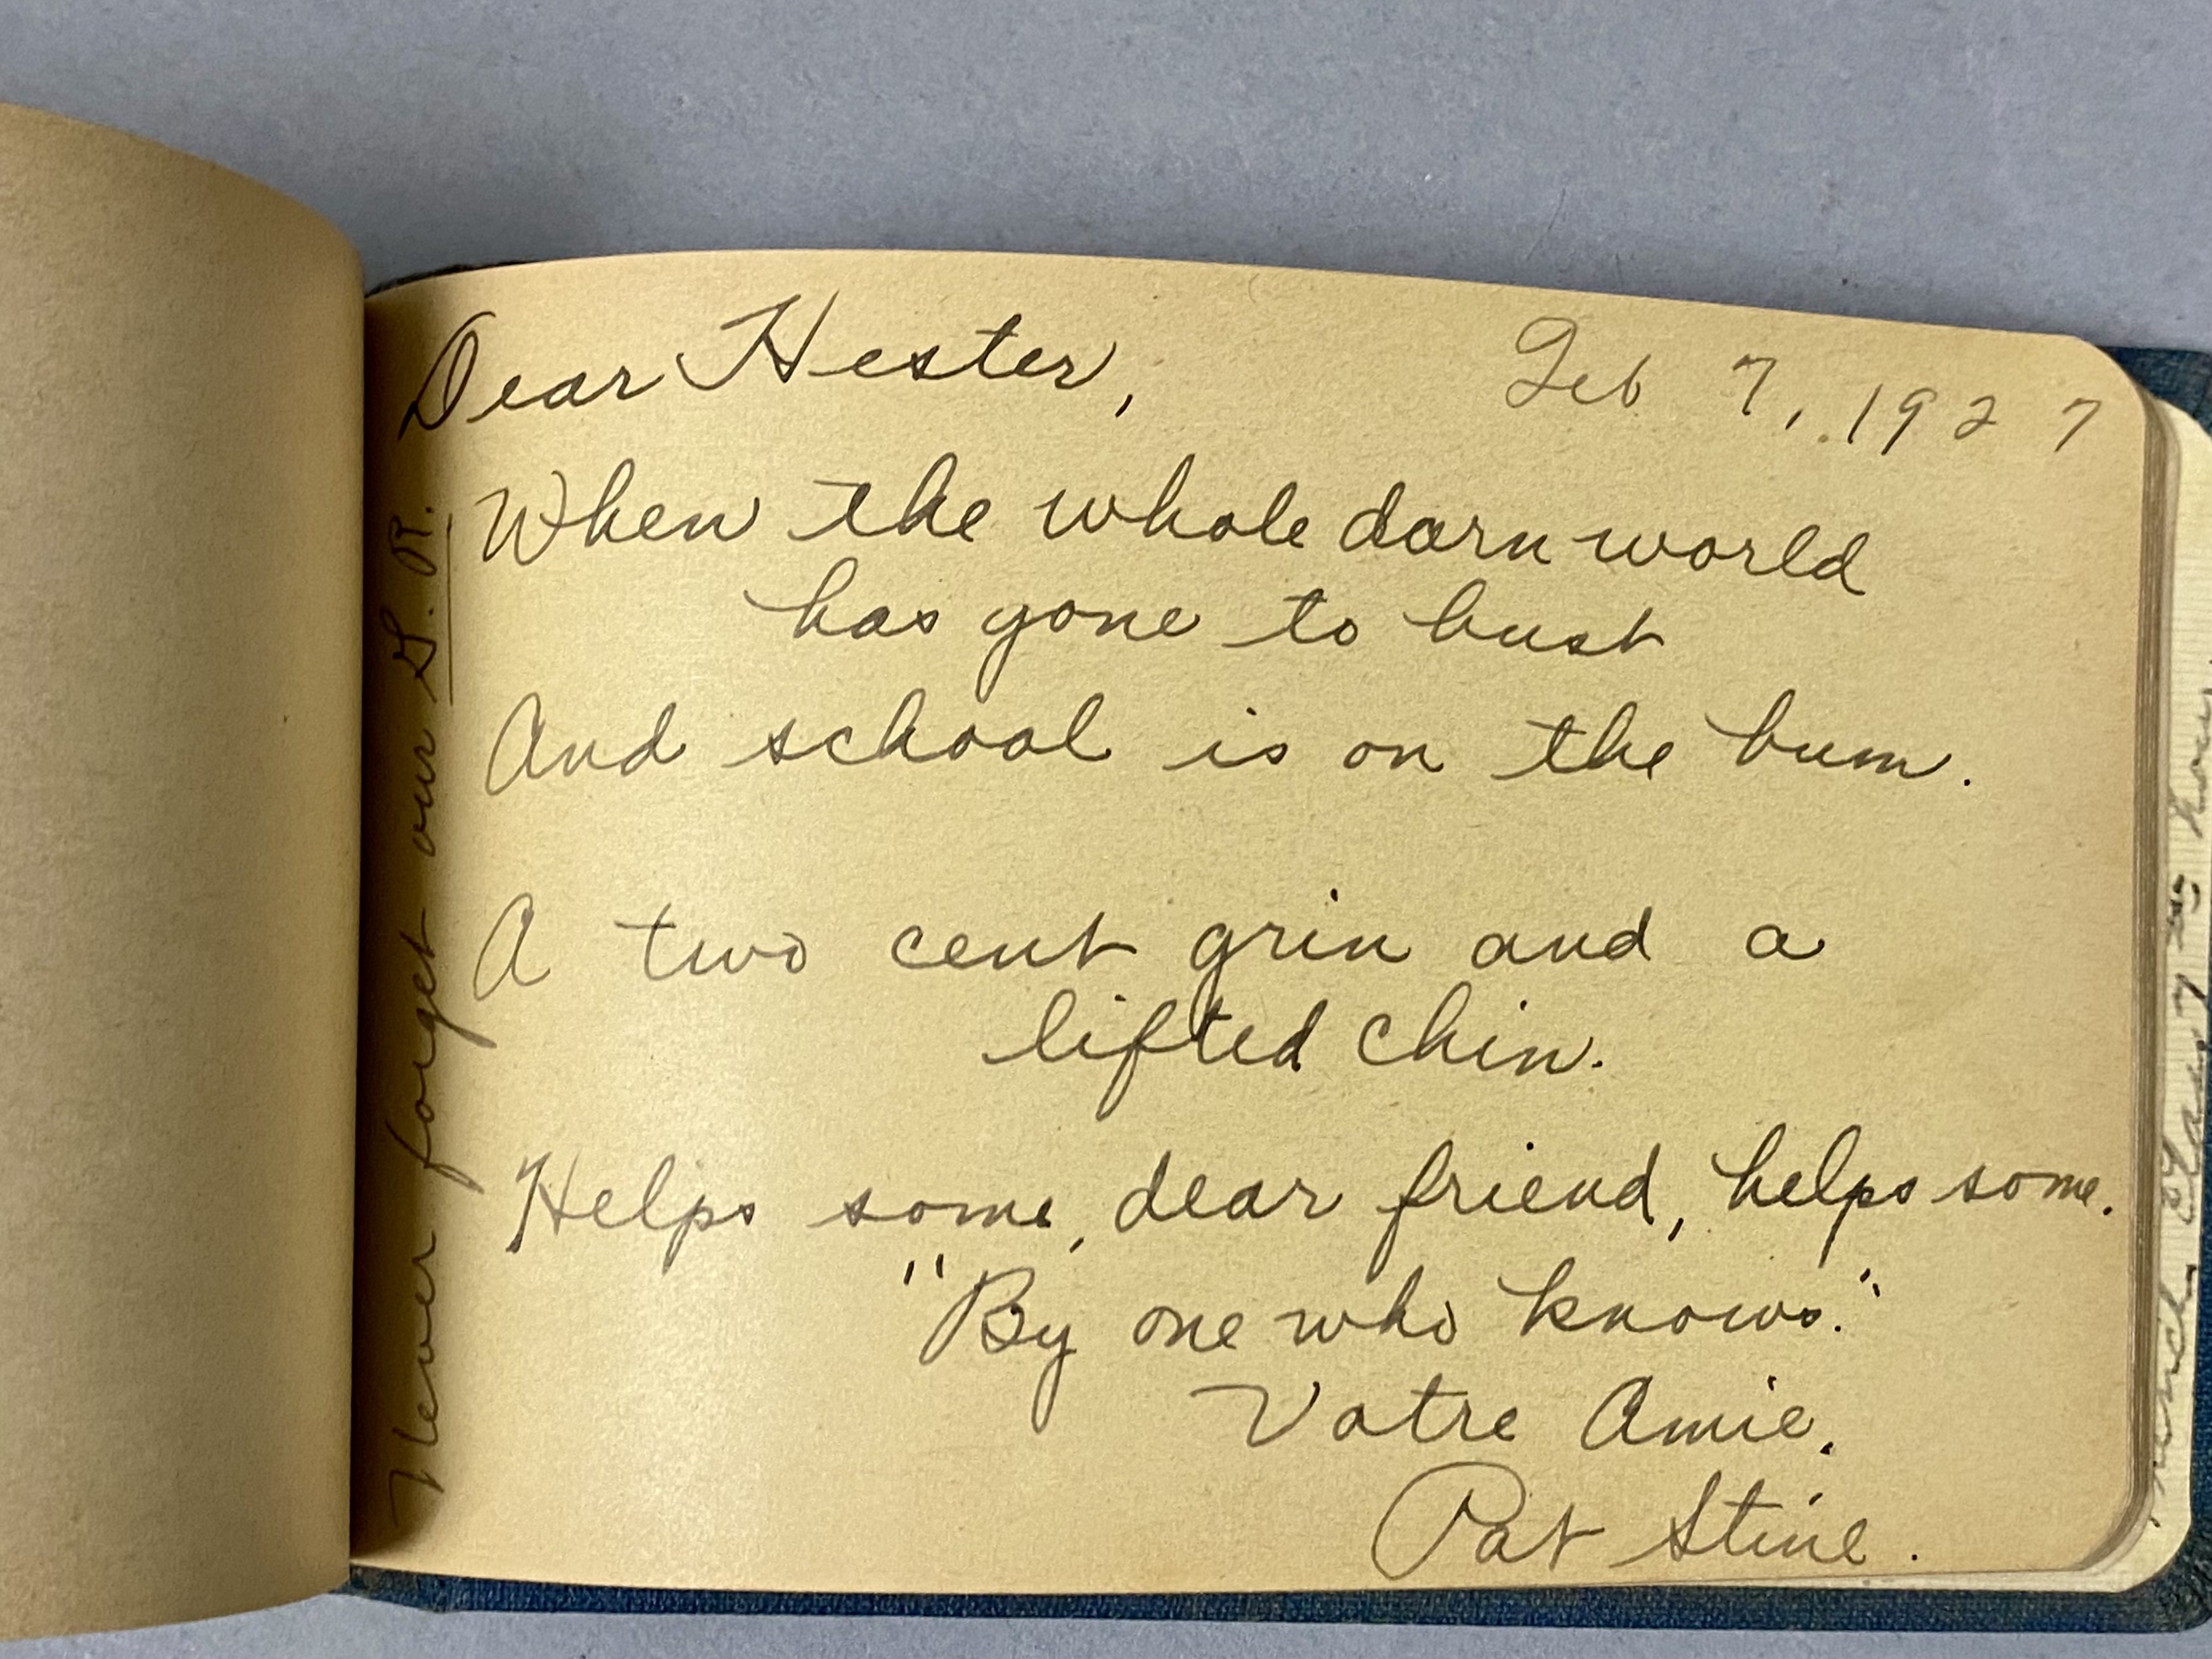 Dear Hester,
Feb 7, 1927
When the whole darn world
has gone to bust
And school is on the bum.
A two cent grin and a
lifted chin.
Helps some, dear friend, helps some.
"By one who knows."
Votre Amie.
Pat Stine.
Never forget our S. R.